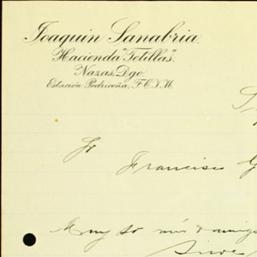 Joaquin Sanabria.
Hacienda "Tetillas".
Nazas, Dgo.
Estación Pedriceña, F.C.I.M.
Sr
Francisco G
Muy Sr mío y amigo